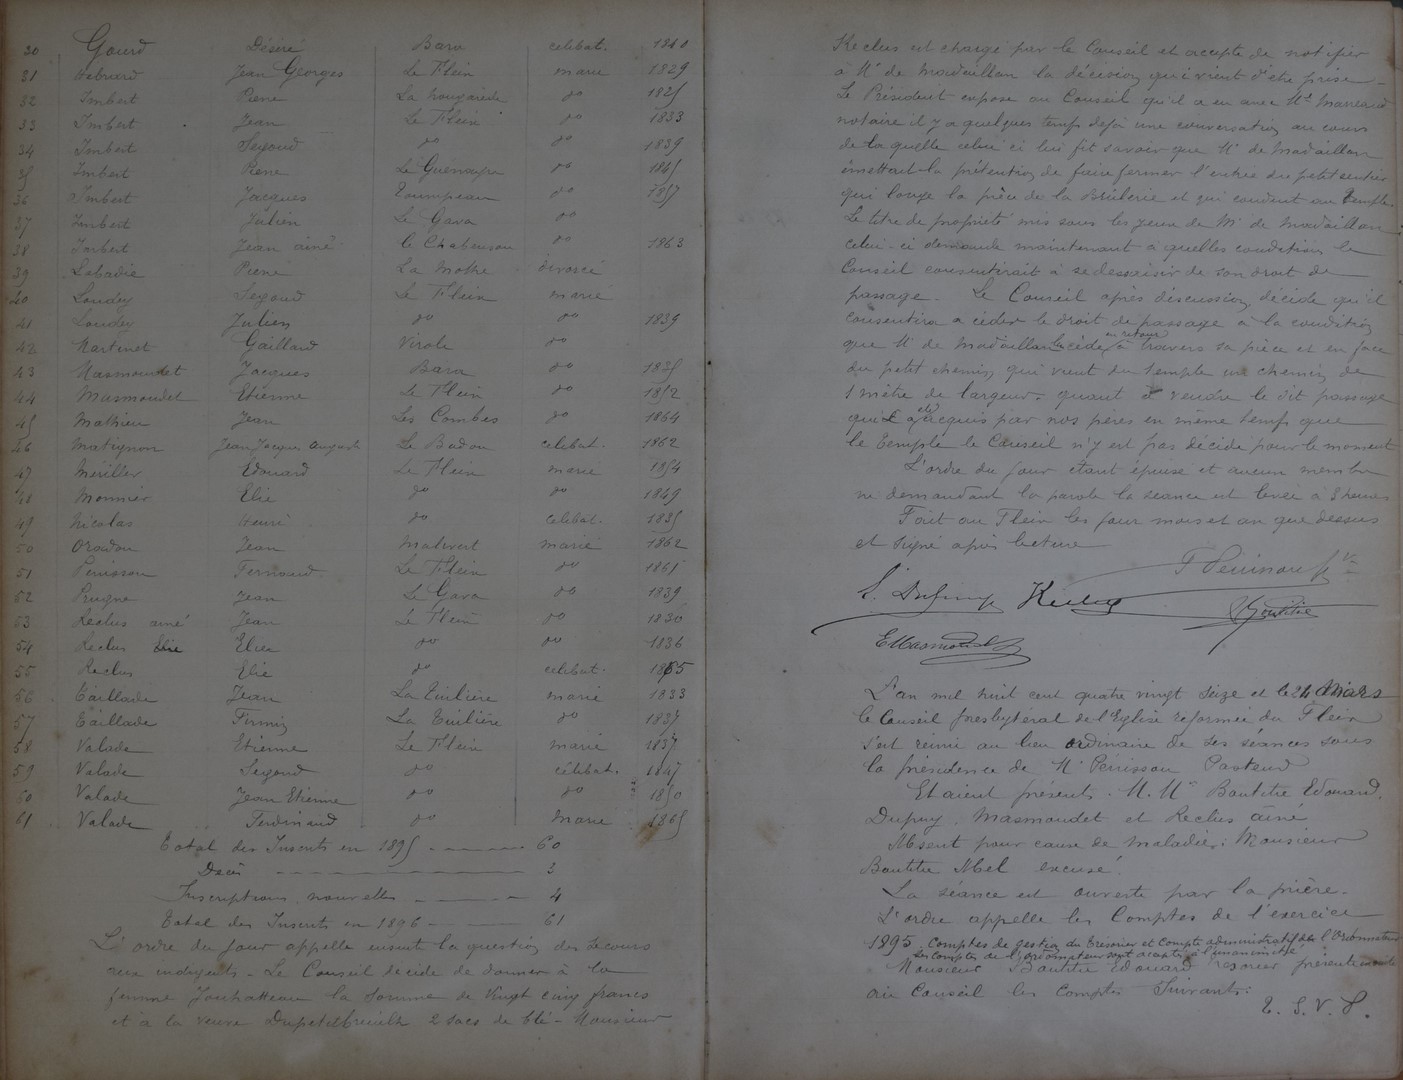 30 Gourd Désiré Bara celibat. 1840
31 Hebrard Jean Georges Le Fleix marié 1829
32 Imbert Pierre La do 1825
33 Imbert Jean Le Fleix do 1833
34 Imbert Segond do do 1839
35 Imbert Pierre Le do 1845
36 Imbert Jacques do 1857
37 Imbert Julien Le Gava do
38 Imbert Jean ainé le do 1863
39 Labadie Pierre La Mothe divorcé
40 Loudey Segond Le Fleix marié
41 Loudey Julien do do 1839
42 Martinet Gaillard Virole do
43 Masmondet Jacques Bara do 1835
44 Masmondet Etienne Le Fleix do 1852
45 Mathieu Jean Les Combes do 1864
46 Matignon Jean Jacques Auguste Le Badou celibat. 1862
47 Mériller Edouard Le Fleix marié 1854
48 Monnier Elie do do 1849
49 Nicolas Henri do celibat. 1835
50 Jean marié 1862
51 Penisson Fernand Le Fleix do 1861
52 Jean Le Gava do 1839
53 Reclus ainé Jean Le Fleix do 1830
54 Reclus Elie Elie do do 1836
55 Reclus Elie do celibat. 1865
56 Taillade Jean La Tuilière marié 1833
57 Taillade Firmin La Tuilière do 1837
58 Valade Etienne Le Fleix marié 1837
59 Valade Segond do célibat. 1847
60 Valade Jean Etienne do do 1850
61 Valade Ferdinand do marié 1865
Total des Inscrits en 1895 60
Décès 3
Inscriptions nouvelles 4
Total des Inscrits en 1896 61
L'ordre du jour appelle ensuite la question des secours
aux indigents. Le Conseil décide de donner à la
femme la somme de vingt cinq francs
et à la veuve 2 sacs de blé. Monsieur
Reclus est chargé par le Conseil et accepte de notifier
à Mr de Madaillan la décision qui vient d'être prise.
Le Président expose au Conseil qu'il a eu avec Me
notaire il y a quelques temps déjà une conversation au cours
de laquelle celui ci lui fit savoir que Mr de Madaillan
émettait la prétention de faire fermer l'entrée du petit sentier
qui longe la pièce de la Brûlerie et qui conduit au temple.
Le titre de propriété mis sous les yeux de Mr de Madaillan
celui-ci demande maintenant à quelles conditions le
Conseil consentirait à se dessaisir de son droit de
passage. Le Conseil après discussion, décide qu'il
consentira à céder le droit de passage à la condition
que Mr de Madaillan lui cède en retour à travers sa pièce et en face
du petit chemin qui vient du temple un chemin de
1 mètre de largeur. quant à vendre le dit passage
qui a été acquis par nos pères en même temps que
le temple le Conseil n'y est pas décidé pour le moment
L'ordre du jour étant épuisé et aucun membre
ne demandant la parole la séance est levée à 3 heures
Fait au Fleix les jour mois et an que dessus
et signé après lecture
F Penisson pr
E. Dupuy Reclus Boutitie
E Masmondet
L'an mil huit cent quatre vingt seize et le 24 Mars
le Conseil presbytéral de l'Eglise réformée du Fleix
s'est réuni au lieu ordinaire de ses séances sous
la présidence de Mr Penisson Pasteur
Etaient présents. M.Mrs Boutitie Edouard.
Dupuy, Masmondet et Reclus ainé
Absent pour cause de maladie: Monsieur
Boutitie Abel excusé.
La séance est ouverte par la prière.
L'ordre appelle les Comptes de l'exercice
1895. Comptes de gestion du Trésorier et Compte administratif de l'Ordonnateur
Les comptes de l'ordonnateur sont acceptés à l'unanimité
Monsieur Boutitie Edouard trésorier présente ensuite
au Conseil les Comptes suivants:
T. S. V. P.